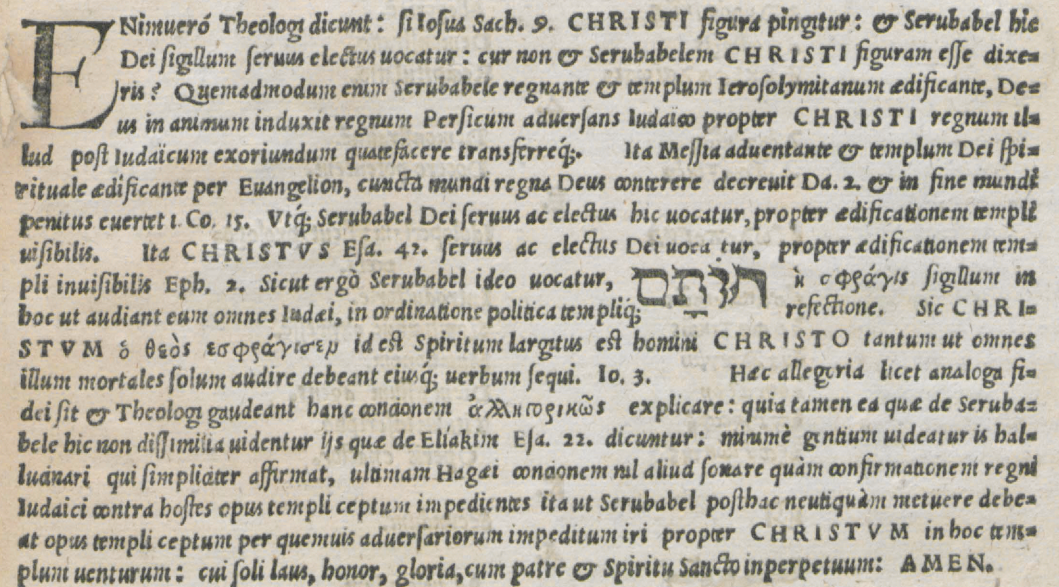 ENimueró Theologi dicunt: si Iosua Sach. 9. CHRISTI figura pingitur: & Serubabel hic
Dei sigillum seruus electus uocatur: cur non & Serubabelem CHRISTI figuram esse dixe=
ris? Quemadmodum enim Serubabele regnante & templum Ierosolymitanum ædificante, De=
us in animum induxit regnum Persicum aduersans Iudaico propter CHRISTI regnum il=
lud post Iudaicum exoriundum quatefacere transferreq́;. Ita Messia aduentante & templum Dei spi=
rituale ædificante per Euangelion, cuncta mundi regna Deus conterere decreuit Da. 2. & in fine mundi
penitus euertet 1. Co. 15. Vtq́; Serubabel Dei seruus ac electus hic uocatur, propter ædificationem templi
uisibilis. Ita CHRISTVS Esa. 42. seruus ac electus Dei uocatur, propter ædificationem tem=
pli inuisibilis Eph. 2. Sicut ergò Serubabel ideo uocatur, חוֹתָם ἡ σφράγις sigillum in
hoc ut audiant eum omnes Iudæi, in ordinatione politica templiq́; refectione. Sic CHRI=
STVM ὁ θεὸς εσφράγισεν id est Spiritum largitus est homini CHRISTO tantum ut omnes
illum mortales solum audire debeant eiusq́; uerbum sequi. Io. 3. Hæc allegoria licet analoga fi=
dei sit & Theologi gaudeant hanc concionem ἀλληγορικῶς explicare: quia tamen ea quæ de Seruba=
bele hic non dissimilia uidentur ijs quæ de Eliakim Esa. 22. dicuntur: minimè gentium uideatur is hal=
lucinari qui simpliciter affirmat, ultimam Hagæi concionem nil aliud sonare quàm confirmationem regni
Iudaici contra hostes opus templi ceptum impedientes ita ut Serubabel posthac neutiquàm metuere debe=
at opus templi ceptum per quemuis aduersariorum impeditum iri propter CHRISTVM in hoc tem=
plum uenturum: cui soli laus, honor, gloria, cum patre & Spiritu Sancto in perpetuum: AMEN.